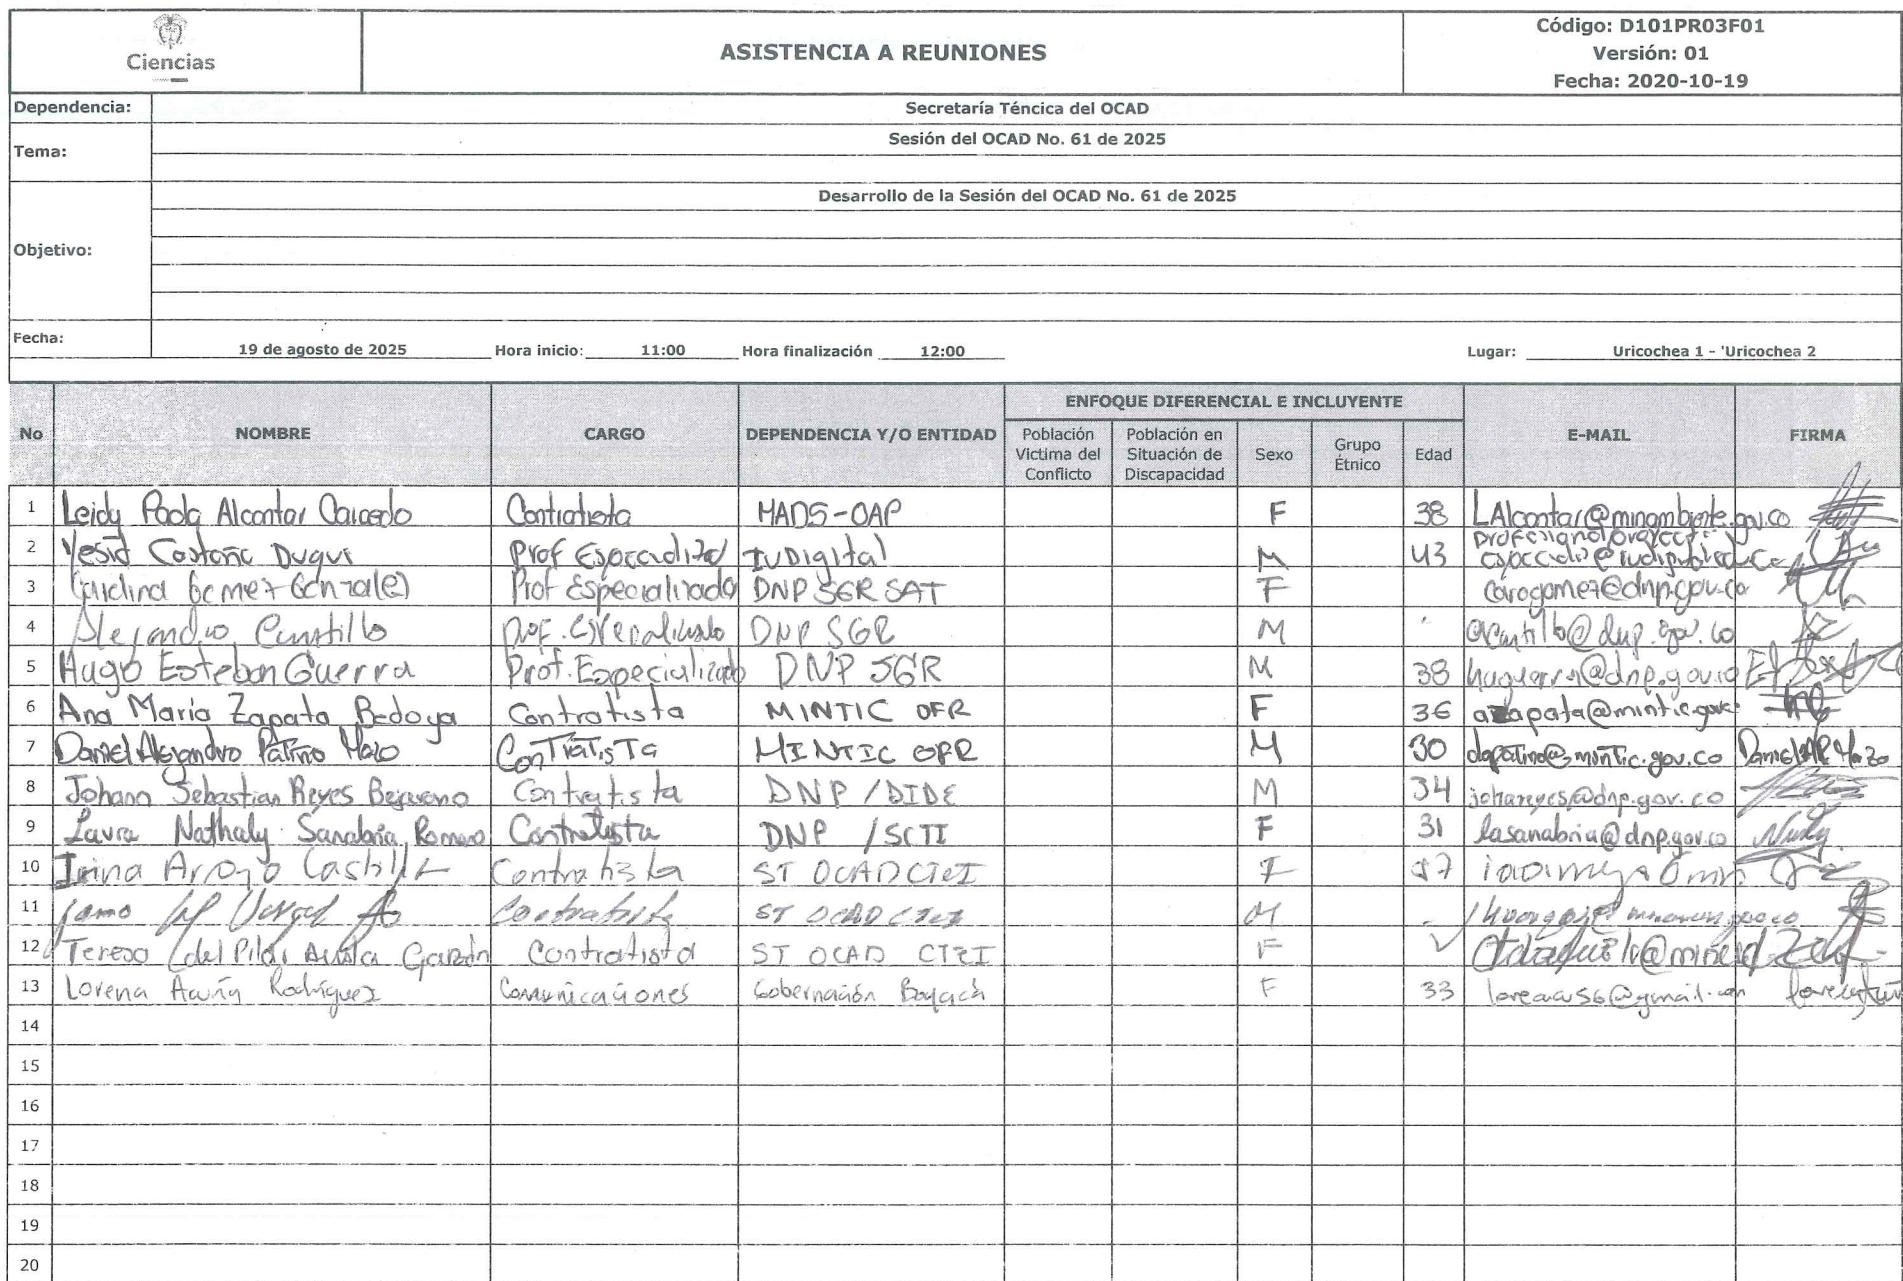 Ciencias
ASISTENCIA A REUNIONES
Código: D101PR03F01
Versión: 01
Fecha: 2020-10-19
Dependencia: Secretaría Téncica del OCAD
Tema: Sesión del OCAD No. 61 de 2025
Objetivo: Desarrollo de la Sesión del OCAD No. 61 de 2025
Fecha: 19 de agosto de 2025 Hora inicio: 11:00 Hora finalización 12:00 Lugar: Uricochea 1 - 'Uricochea 2
No NOMBRE CARGO DEPENDENCIA Y/O ENTIDAD ENFOQUE DIFERENCIAL E INCLUYENTE E-MAIL FIRMA
Población Victima del Conflicto Población en Situación de Discapacidad Sexo Grupo Étnico Edad
1 Leidy Paola Alcantar Caicedo Contratista MADS-OAP F 38 LAlcantar@minambiente.gov.co
2 Yesid Castaño Duque Prof IUDigital M 43
3 Carolina Gomez Gonzalez Prof Especializado DNP SGR SAT F carogomez@dnp.gov.co
4 Alejandro Prof. DNP SGR M
5 Hugo Esteban Guerra Prof. Especializado DNP SGR M 38 huguerra@dnp.gov.co
6 Ana María Zapata Bedoya Contratista MINTIC F 36 azapata@mintic.gov.c
7 Daniel Alejandro Patiño Mazo ConTratisTa MINTIC M 30 dapatino@minTic.gov.co
8 Johann Sebastian Reyes Bejarano Contratista DNP /DIDE M 34 johareyes@dnp.gov.co
9 Laura Nathaly Sanabria Romero Contratista DNP /SCTI F 31 lasanabria@dnp.gov.co
10 Irina Arroyo Castill Contratista ST OCAD CTeI F
11 Contratista ST OCAD CTeI M
12 Teresa del Pilar Garzón Contratista ST OCAD CTeI F
13 Lorena Acuña Rodríguez Comunicaciones Gobernación Boyacá F 33 loreacu56@gmail.com
14
15
16
17
18
19
20